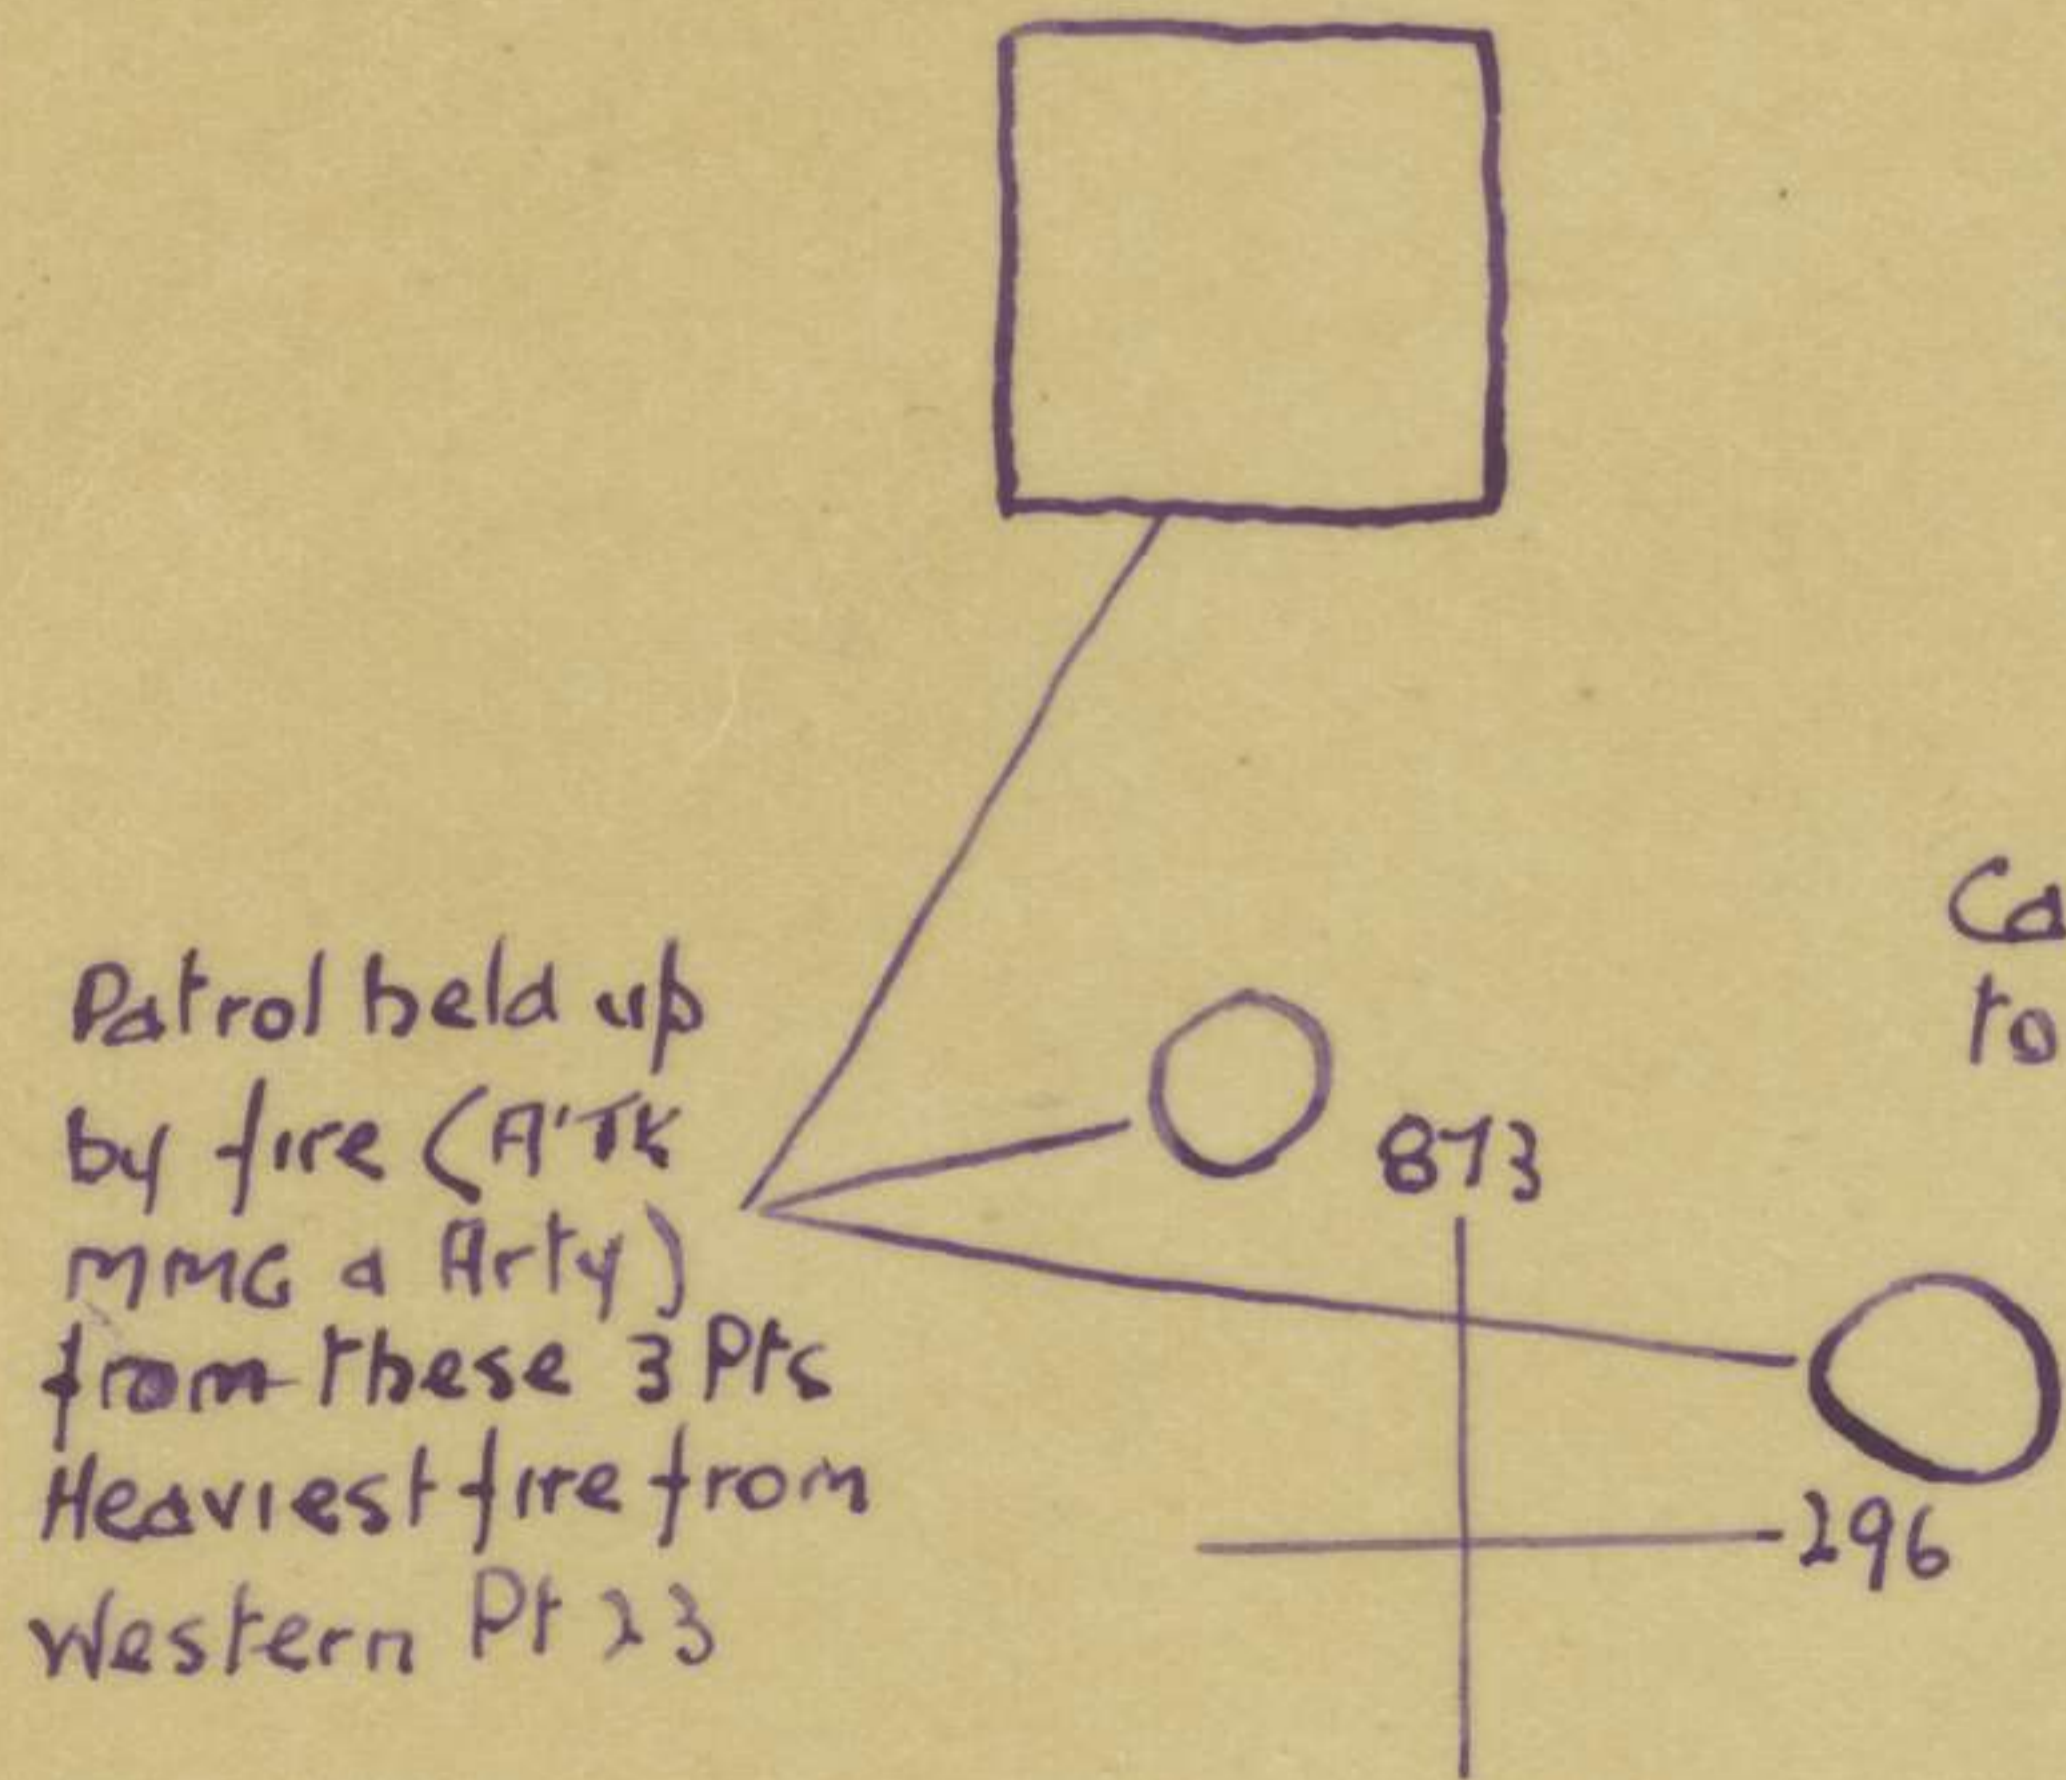 Patrol held up
by fire (A'TK
MMG & Arty)
from these 3 Pts
Heaviest fire from
Western Pt 23
873
296
Ca
to